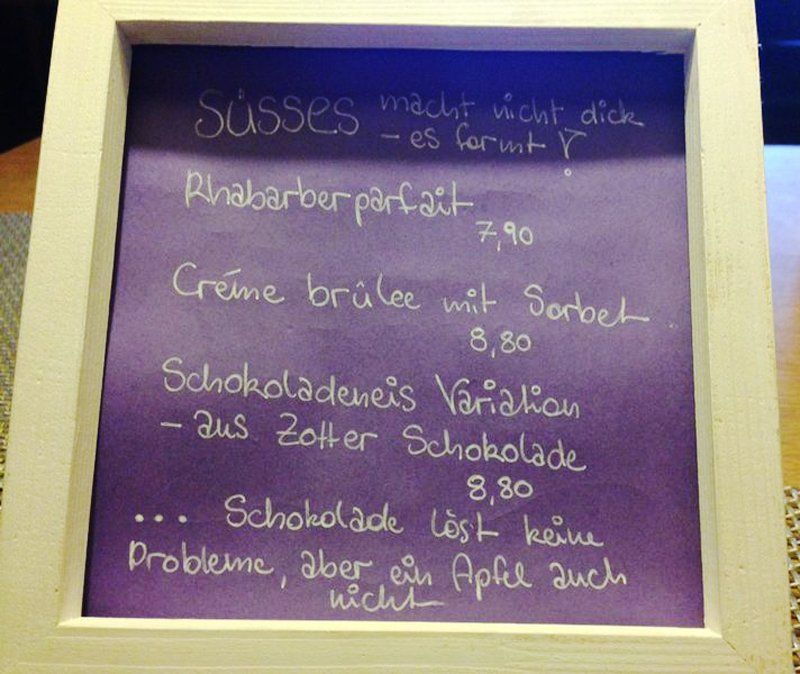 SÜSSES macht nicht dick
- es formt !
Rhabarberparfait
7,90
Créme brûlee mit Sorbet
8,80
Schokoladeneis Variation
- aus Zotter Schokolade
8,80
... Schokolade löst keine
Probleme, aber ein Apfel auch
nicht